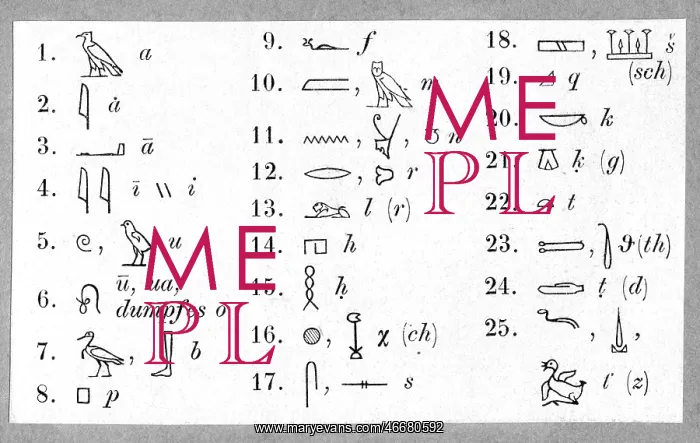 1. a
2. ȧ
3. ā
4. ī \\ i
5. , u
6. ū, ua,
dumpfes o
7. , b
8. p
9. f
10. ,
11. , , n
12. , r
13. l (r)
14. h
15. ḥ
16. , χ (ch)
17. , s
18. , š
(sch)
19. q
20. k
21. ḳ (g)
22. t
23. , ϑ (th)
24. ṭ (d)
25. , ,
(z)
ME
PL
ME
PL
www.maryevans.com/46680592